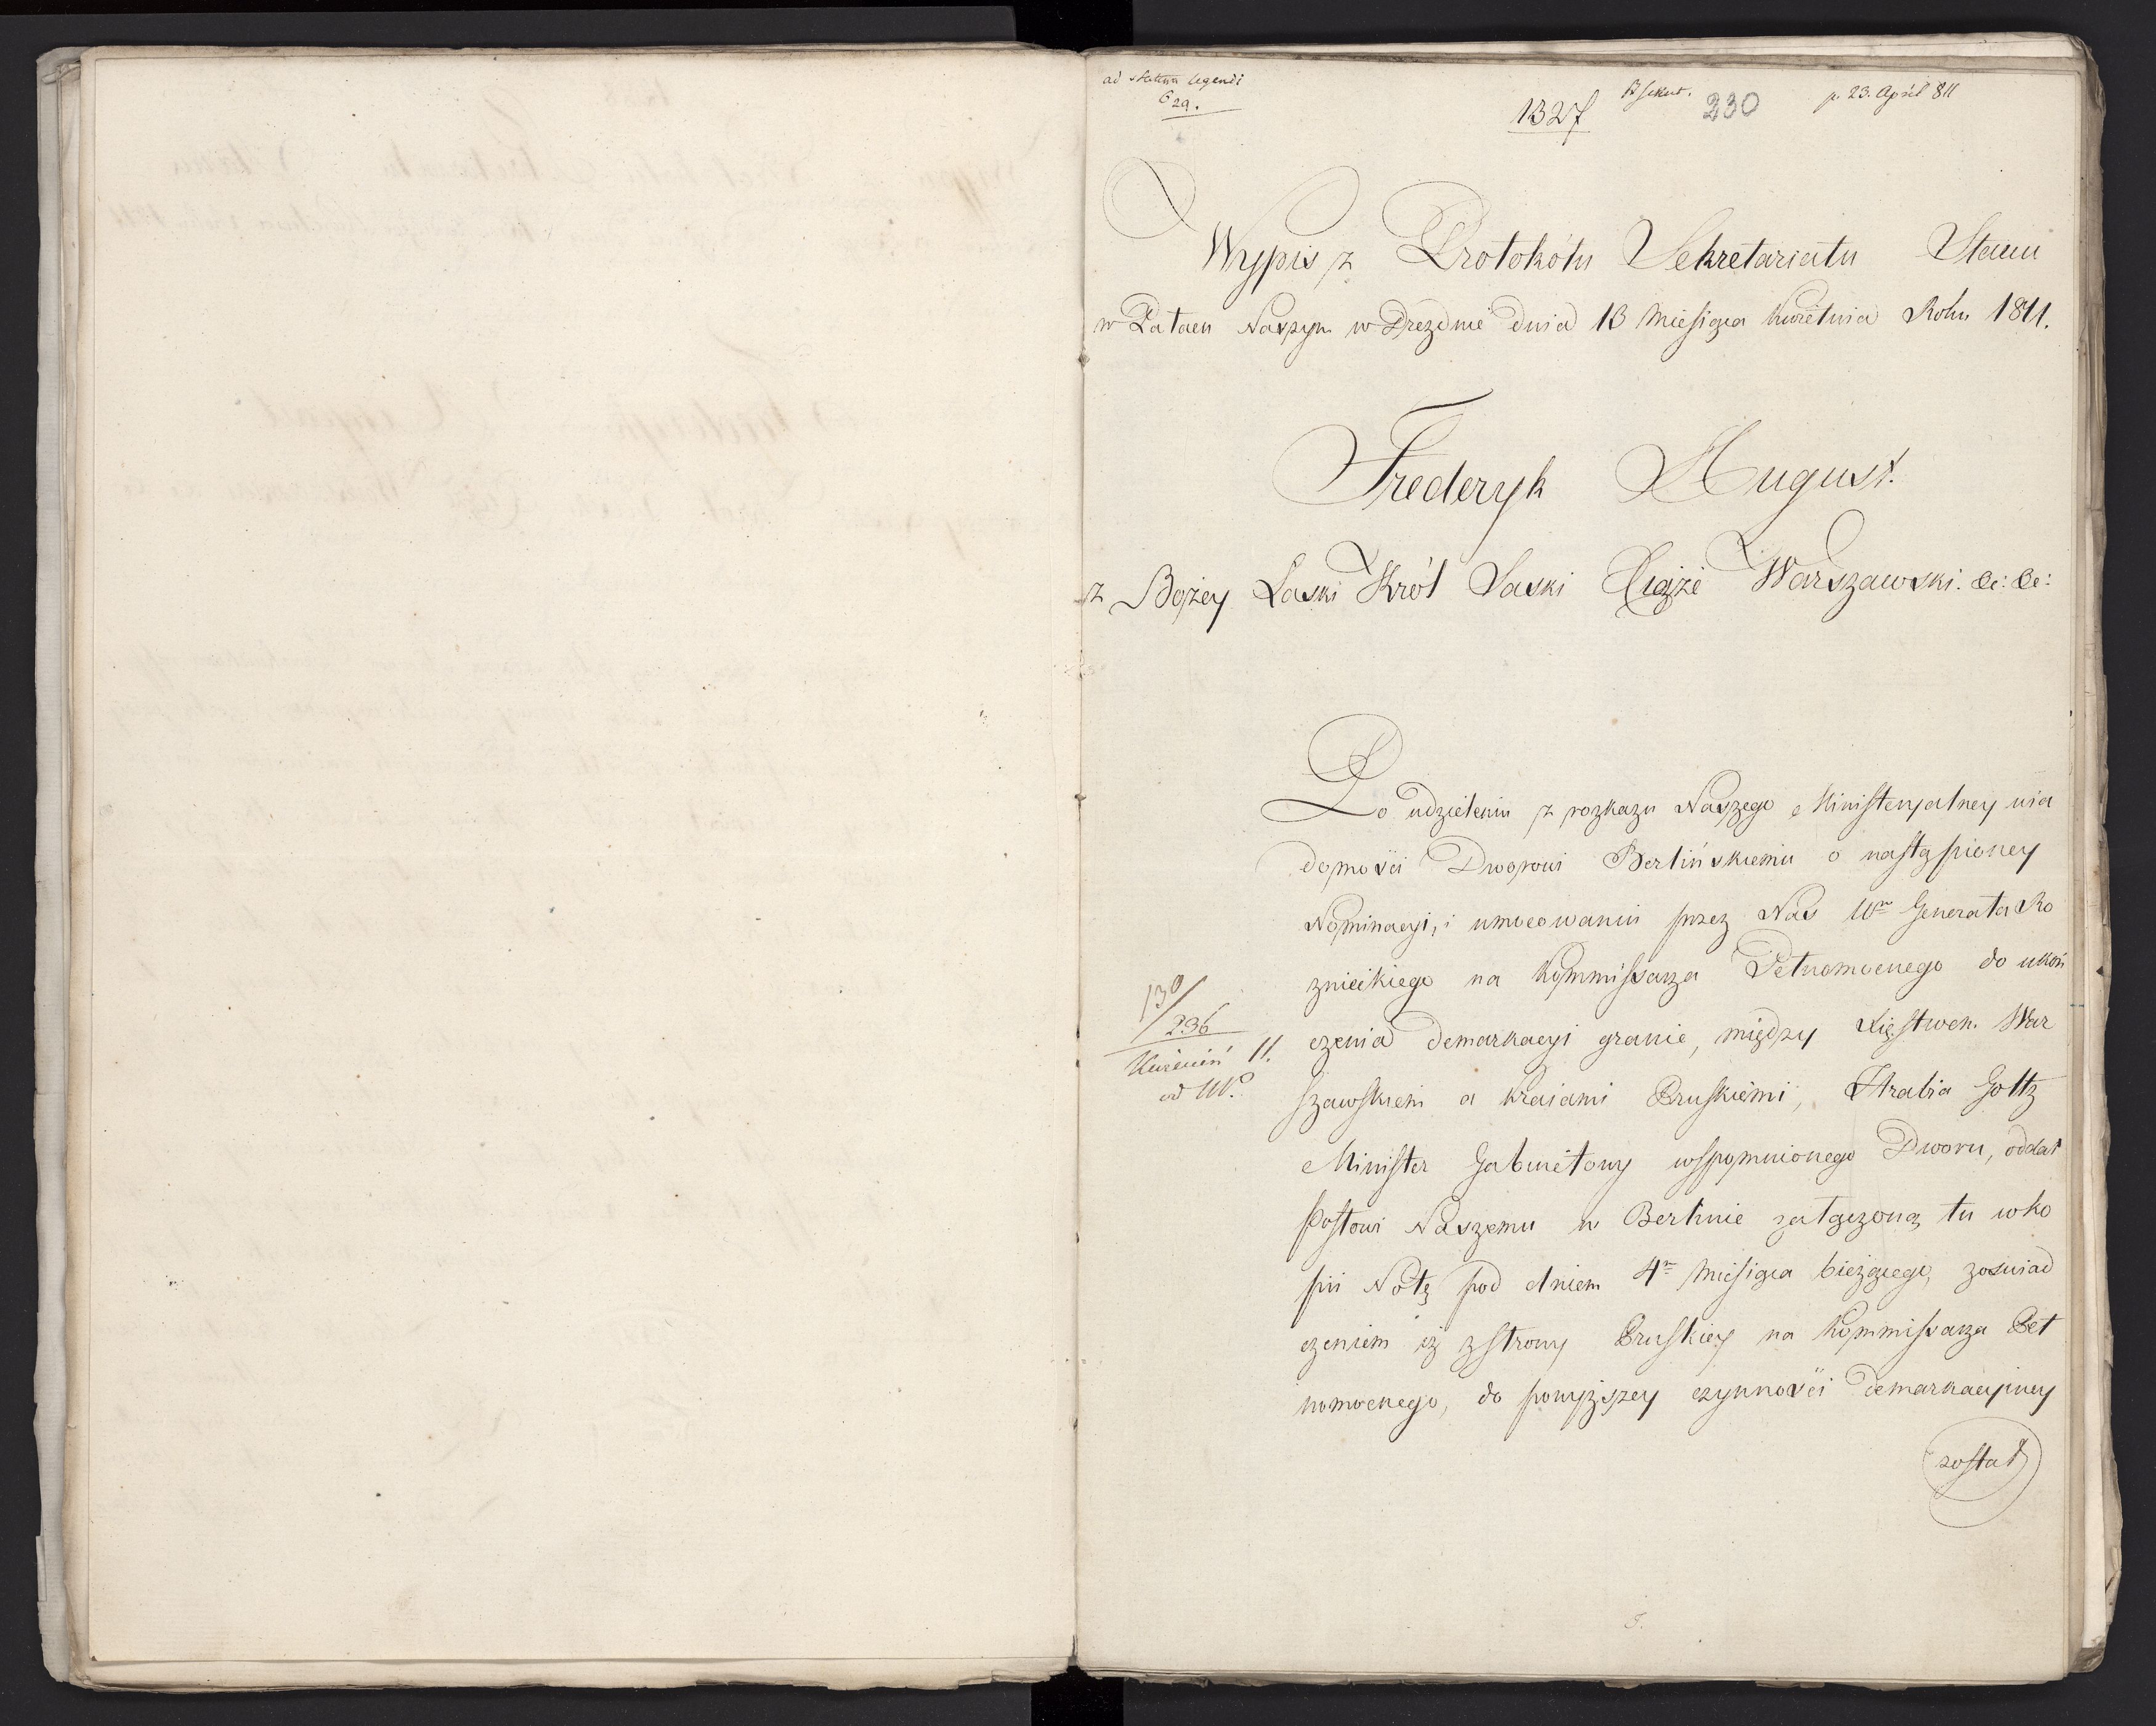 ad statum legendi
629.
1327
230
p. 23. April 811
Wypis z Protokółu Sekretariatu Stanu
w Pałacu Naszym w Dreznie dnia 13 Miesiąca Kwietnia Roku 1811.
Frederyk August.
z Bożey Łaski Król Saski Xiąże Warszawski. &c: &c:
Po udzieleniu z rozkazu Naszego Ministeryalney wia
domości Dworowi Berlińskiemu o nastąpioney
Nominacyi, i umocowaniu przez Nas Ur. Generała Ro
znieckiego na Kommissarza Pełnomocnego do ukoń
czenia demarkacyi granic, między Xięstwem War
szawskiem a Kraiami Pruskiemi, Hrabia Goltz
Minister Gabinetowy wspomnionego Dworu, oddał
Posłowi Naszemu w Berlinie załączoną tu w ko
pii Notę pod dniem 4m Miesiąca bieżącego, z oświad
czeniem iż z strony Pruskiey na Kommissarza Peł
nomocnego, do powyższey czynności demarkacyiney
został
130/
236
Kwiecień 11.